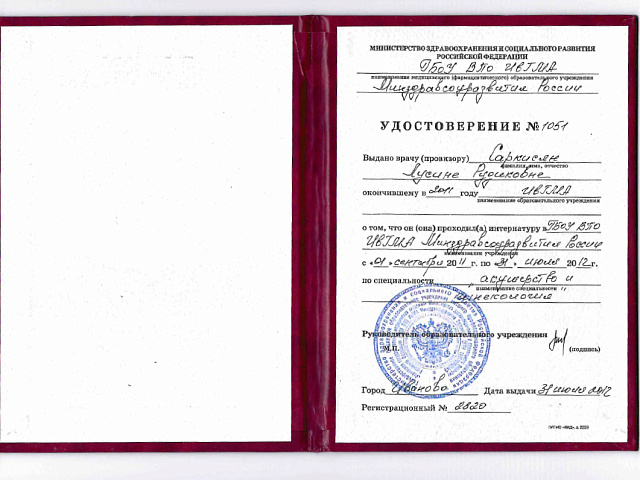 МИНИСТЕРСТВО ЗДРАВООХРАНЕНИЯ И СОЦИАЛЬНОГО РАЗВИТИЯ
РОССИЙСКОЙ ФЕДЕРАЦИИ
ГБОУ ВПО ИвГМА
наименование медицинского (фармацевтического) образовательного учреждения
Минздравсоцразвития России
УДОСТОВЕРЕНИЕ № 1051
Выдано врачу (провизору) Саркисян
фамилия, имя, отчество
Лусине Рудиковне
окончившему в 2011 году ИвГМА
наименование образовательного учреждения
о том, что он (она) проходил(а) интернатуру в ГБОУ ВПО
ИвГМА Минздравсоцразвития России
наименование учреждения
с «01» сентября 2011 г. по «31» июля 2012 г.
по специальности „акушерство и
наименование специальности
гинекология"
Руководитель образовательного учреждения
М.П.
(подпись)
Город Иваново Дата выдачи 31 июля 2012
Регистрационный № 2820